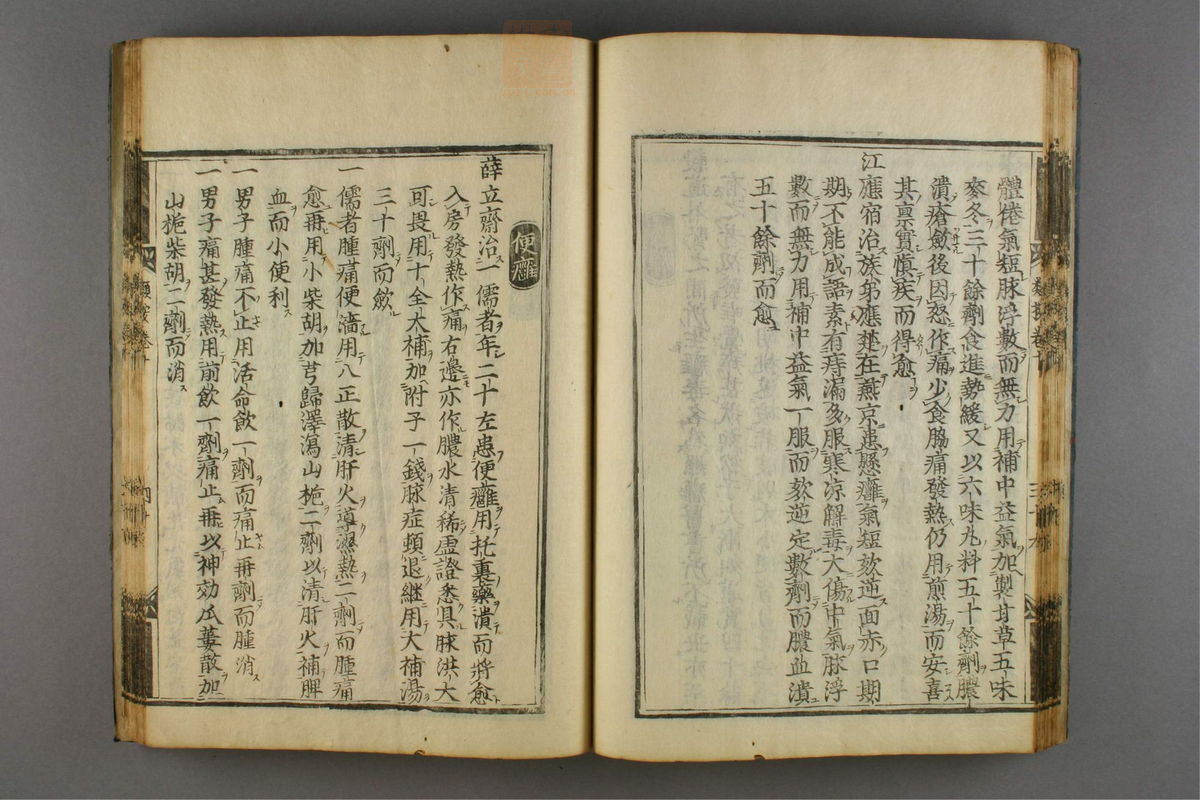 體倦氣短脉浮數而無力用補中益氣加製甘草五味
麥冬三十餘劑食進勢緩又以六味丸料五十餘劑膿
潰瘡斂後因怒作痛少食脇痛發熱仍用前湯而安喜
其稟實慎疾而得愈
江應宿治族弟應楚在燕京患懸癰氣短欬逆面赤口期
期不能成語素有痔漏多服寒凉解毒大傷中氣脉浮
數而無力用補中益氣一服而欬逆定數劑而膿血潰
五十餘劑而愈
便癰
薛立齋治一儒者年二十左患便癰用托裏藥潰而將愈
入房發熱作痛右邊亦作膿水清稀虛證悉具脉洪大
可畏用十全大補加附子一錢脉症頓退繼用大補湯
三十劑而斂
一儒者腫痛便濇用八正散清肝火導濕熱二劑而腫痛
愈再用小柴胡加芎歸澤瀉山梔二劑以清肝火補脾
血而小便利
一男子腫痛不止用活命飲一劑而痛止再劑而腫消
一男子痛甚發熱用前飲一劑痛止再以神効瓜蔞散加
山梔柴胡二劑而消